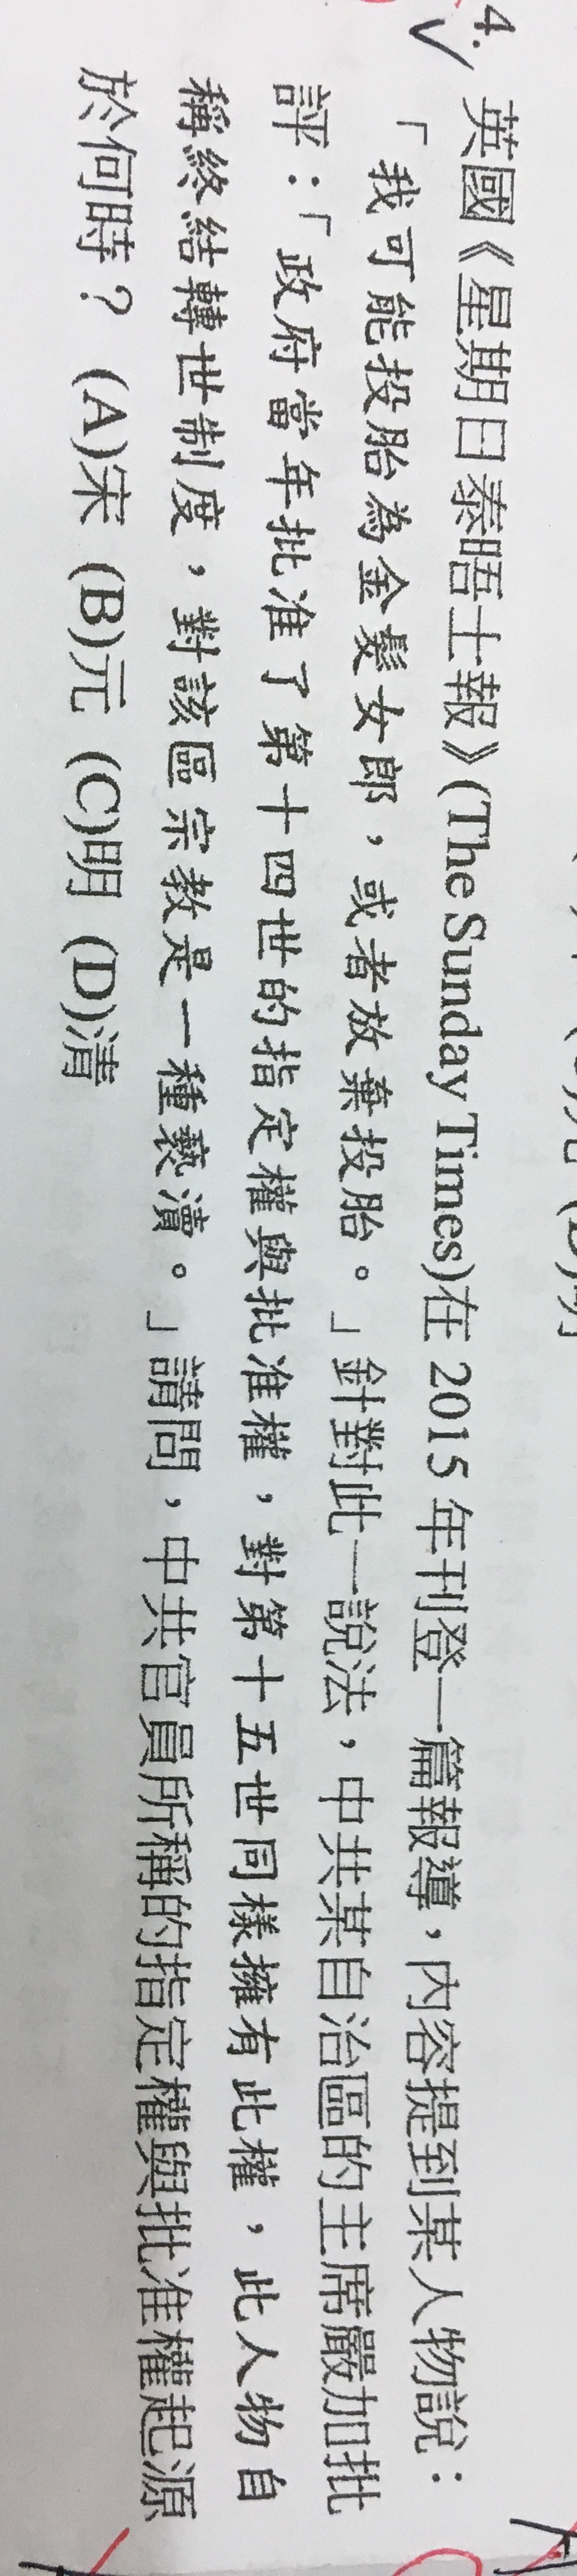 4. 英國《星期日泰晤士報》(The Sunday Times)在 2015 年刊登一篇報導，內容提到某人物說：
「我可能投胎為金髮女郎，或者放棄投胎。」針對此一說法，中共某自治區的主席嚴加批
評：「政府當年批准了第十四世的指定權與批准權，對第十五世同樣擁有此權，此人物自
稱終結轉世制度，對該區宗教是一種褻瀆。」請問，中共官員所稱的指定權與批准權起源
於何時？ (A)宋 (B)元 (C)明 (D)清